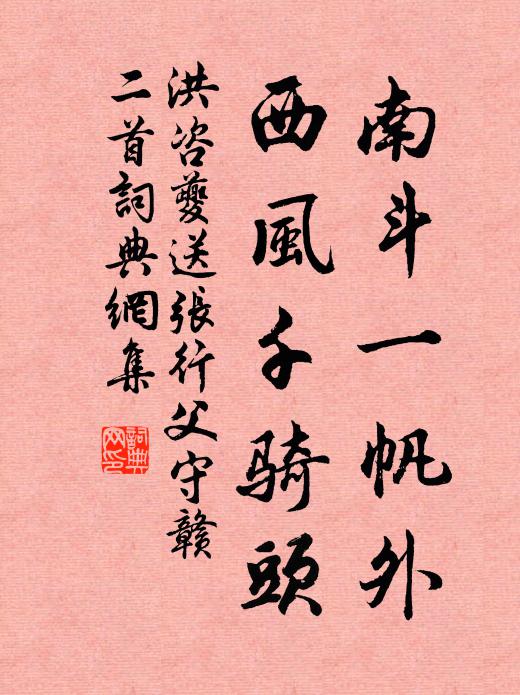 南斗一帆外
西風千騎頭
洪咨夔送張行父守贛
二首詞典網集
詞典
網印